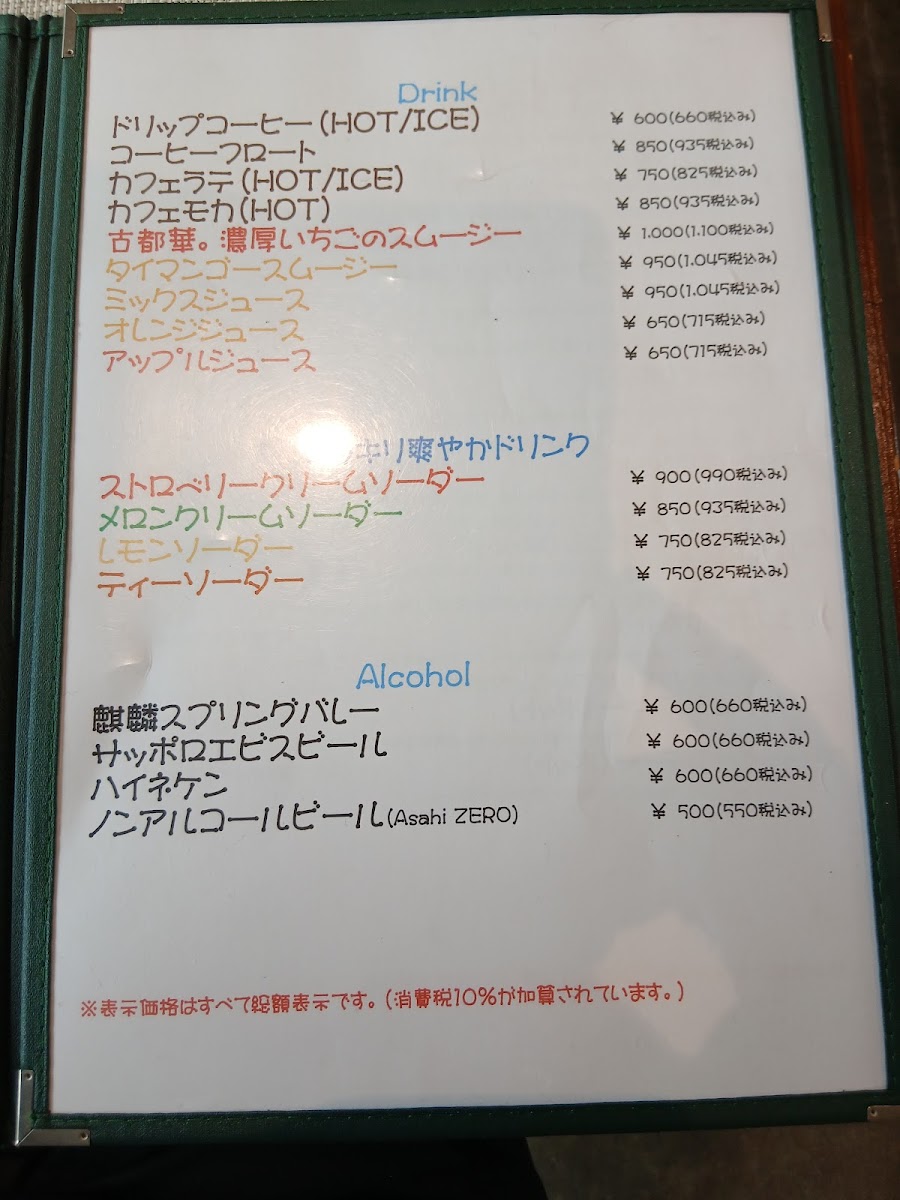 Drink
ドリップコーヒー(HOT/ICE) ¥ 600(660税込み)
コーヒーフロート ¥ 850(935税込み)
カフェラテ(HOT/ICE) ¥ 750(825税込み)
カフェモカ(HOT) ¥ 850(935税込み)
古都華。濃厚いちごのスムージー ¥ 1.000(1.100税込み)
タイマンゴースムージー ¥ 950(1.045税込み)
ミックスジュース ¥ 950(1.045税込み)
オレンジジュース ¥ 650(715税込み)
アップルジュース ¥ 650(715税込み)
キリ爽やかドリンク
ストロベリークリームソーダー ¥ 900(990税込み)
メロンクリームソーダー ¥ 850(935税込み)
レモンソーダー ¥ 750(825税込み)
ティーソーダー ¥ 750(825税込み)
Alcohol
麒麟スプリングバレー ¥ 600(660税込み)
サッポロエビスビール ¥ 600(660税込み)
ハイネケン ¥ 600(660税込み)
ノンアルコールビール(Asahi ZERO) ¥ 500(550税込み)
※表示価格はすべて総額表示です。(消費税10%が加算されています。)